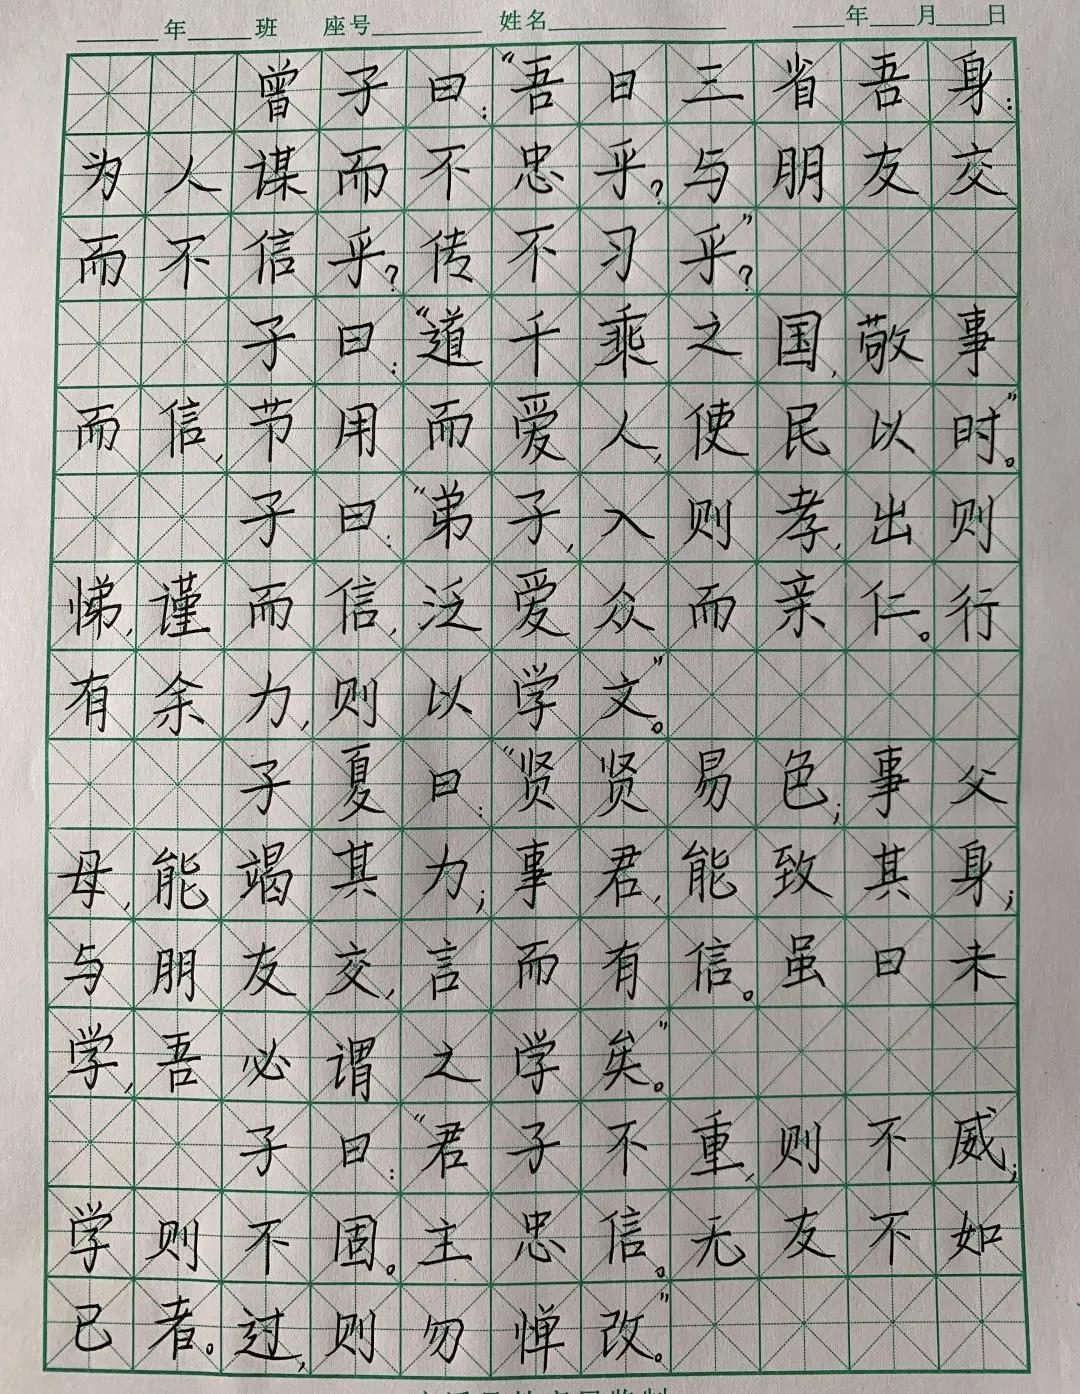 ____年____班 座号______ 姓名__________ ___年___月___日
曾子曰：“吾日三省吾身：
为人谋而不忠乎？与朋友交
而不信乎？传不习乎？”
子曰：“道千乘之国，敬事
而信，节用而爱人，使民以时。”
子曰：“弟子，入则孝，出则
悌，谨而信，泛爱众而亲仁。行
有余力，则以学文。”
子夏曰：“贤贤易色；事父
母，能竭其力；事君，能致其身；
与朋友交，言而有信。虽曰未
学，吾必谓之学矣。”
子曰：“君子不重，则不威；
学则不固。主忠信。无友不如
己者。过，则勿惮改。”